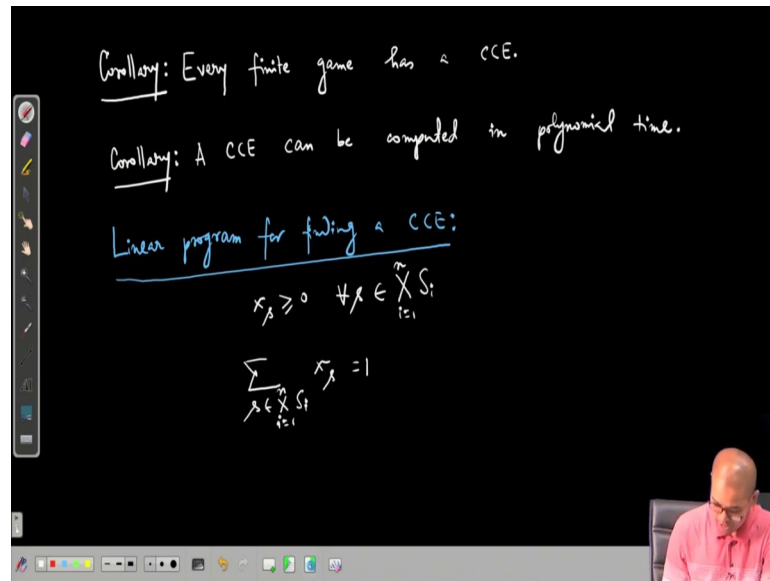 Corollary: Every finite game has a CCE.
Corollary: A CCE can be computed in polynomial time.
Linear program for finding a CCE:
x_s ≥ 0 ∀s ∈ X_{i=1}^{n} S_i
∑_{s ∈ X_{i=1}^{n} S_i} x_s = 1